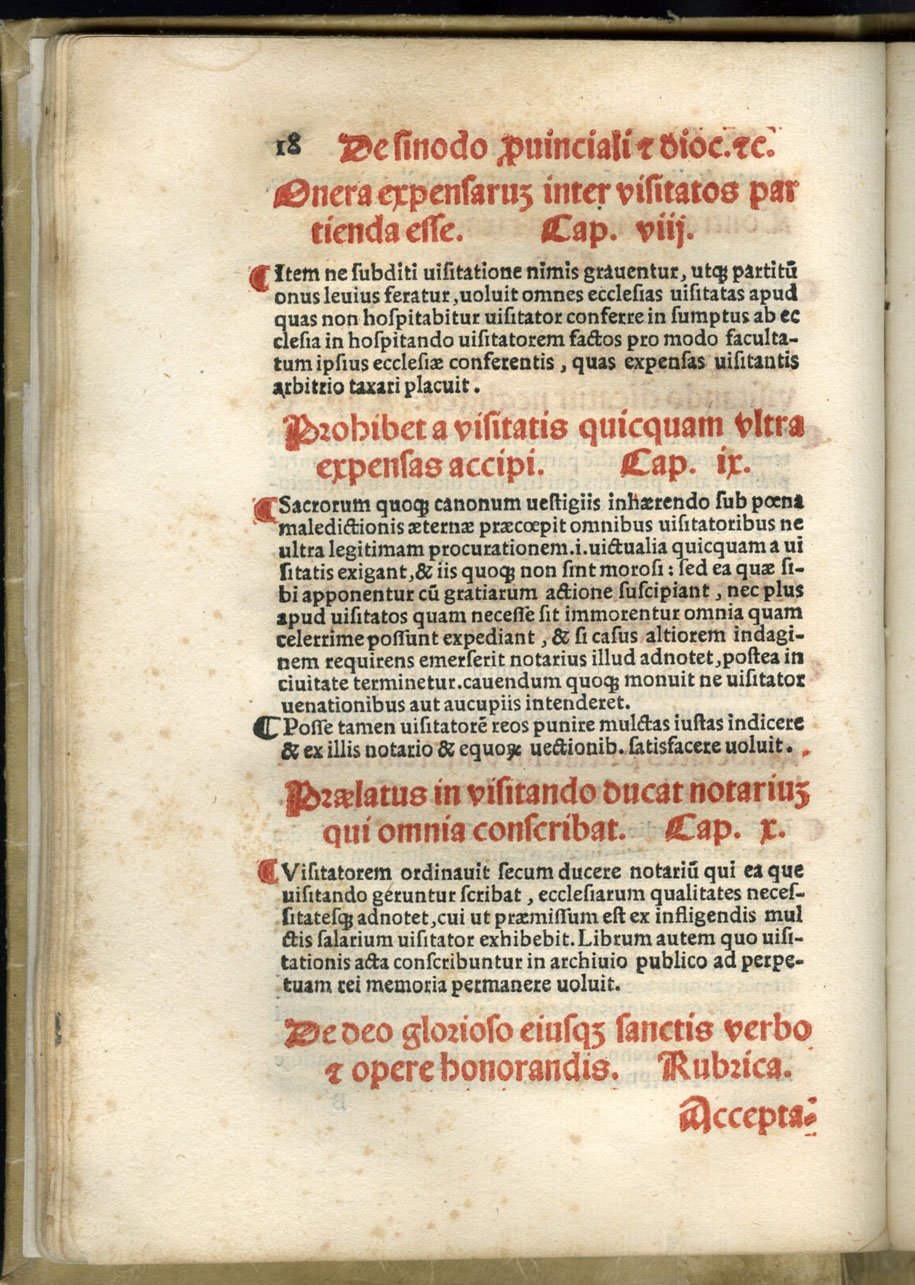 18 De sinodo ꝓuinciali ⁊ dioc. ⁊c.
Onera expensaruꝫ inter visitatos par
tienda esse. Cap. viij.
¶Item ne subditi uisitatione nimis grauentur, utqꝫ partitū
onus leuius feratur, uoluit omnes ecclesias uisitatas apud
quas non hospitabitur uisitator conferre in sumptus ab ec
clesia in hospitando uisitatorem factos pro modo faculta-
tum ipsius ecclesiæ conferentis, quas expensas uisitantis
arbitrio taxari placuit.
Prohibet a visitatis quicquam vltra
expensas accipi. Cap. ix.
¶Sacrorum quoqꝫ canonum uestigiis inhærendo sub pœna
maledictionis æternæ præcœpit omnibus uisitatoribus ne
ultra legitimam procurationem.i.uictualia quicquam a ui
sitatis exigant,& iis quoqꝫ non sint morosi: sed ea quæ si-
bi apponentur cū gratiarum actione suscipiant, nec plus
apud uisitatos quam necesse sit immorentur omnia quam
celerrime possunt expediant, & si casus altiorem indagi-
nem requirens emerserit notarius illud adnotet, postea in
ciuitate terminetur.cauendum quoqꝫ monuit ne uisitator
uenationibus aut aucupiis intenderet.
¶Posse tamen uisitatorē reos punire mulctas iustas indicere
& ex illis notario & equoꝝ uectionib. satisfacere uoluit.
Prælatus in visitando ducat notariuꝫ
qui omnia conscribat. Cap. x.
¶Visitatorem ordinauit secum ducere notariū qui ea que
uisitando geruntur scribat, ecclesiarum qualitates neces-
sitatesqꝫ adnotet,cui ut præmissum est ex infligendis mul
ctis salarium uisitator exhibebit. Librum autem quo uisi-
tationis acta conscribuntur in archiuio publico ad perpe-
tuam rei memoria permanere uoluit.
De deo glorioso eiusqꝫ sanctis verbo
⁊ opere honorandis. Rubrica.
Accepta-